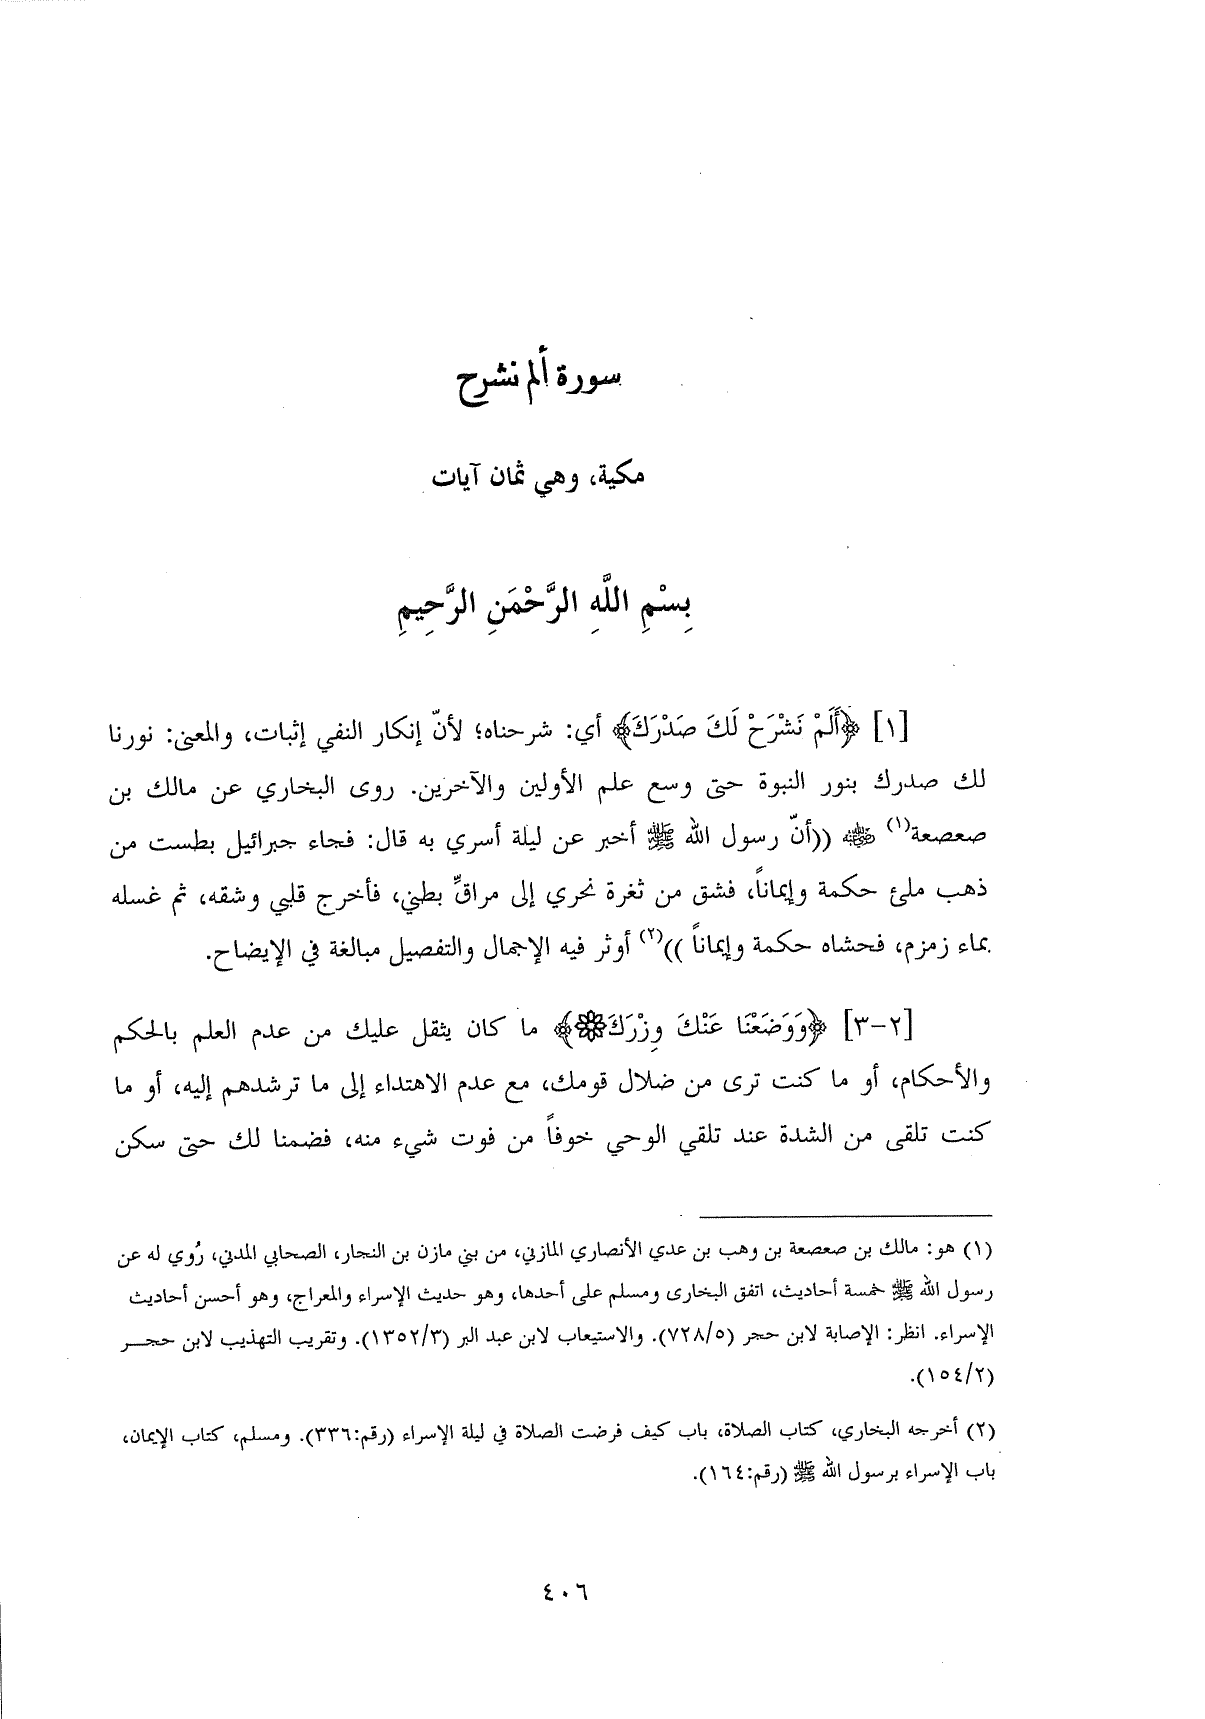 سورة ألم نشرح
مكية، وهي ثمان آيات
بِسْمِ اللَّهِ الرَّحْمَنِ الرَّحِيمِ
[١] ﴿أَلَمْ نَشْرَحْ لَكَ صَدْرَكَ﴾ أي: شرحناه؛ لأنّ إنكار النفي إثبات، والمعنى: نورنا
لك صدرك بنور النبوة حتى وسع علم الأولين والآخرين. روى البخاري عن مالك بن
صعصعة(١) ﷺ ((أنّ رسول الله ﷺ أخبر عن ليلة أسري به قال: فجاء جبرائيل بطست من
ذهب ملئ حكمة وإيماناً، فشق من ثغرة نحري إلى مراقِّ بطني، فأخرج قلبي وشقه، ثم غسله
بماء زمزم، فحشاه حكمة وإيماناً ))(٢) أوثر فيه الإجمال والتفصيل مبالغة في الإيضاح.
[٢-٣] ﴿وَوَضَعْنَا عَنْكَ وِزْرَكَ﴾ ما كان يثقل عليك من عدم العلم بالحكم
والأحكام، أو ما كنت ترى من ضلال قومك، مع عدم الاهتداء إلى ما ترشدهم إليه، أو ما
كنت تلقى من الشدة عند تلقي الوحي خوفاً من فوت شيء منه، فضمنا لك حتى سكن
(١) هو: مالك بن صعصعة بن وهب بن عدي الأنصاري المازني، من بني مازن بن النجار، الصحابي المدني، رُوي له عن
رسول الله ﷺ خمسة أحاديث، اتفق البخارى ومسلم على أحدها، وهو حديث الإسراء والمعراج، وهو أحسن أحاديث
الإسراء. انظر: الإصابة لابن حجر (٧٢٨/٥). والاستيعاب لابن عبد البر (١٣٥٢/٣). وتقريب التهذيب لابن حجـــر
(١٥٤/٢).
(٢) أخرجه البخاري، كتاب الصلاة، باب كيف فرضت الصلاة في ليلة الإسراء (رقم:٣٣٦). ومسلم، كتاب الإيمان،
باب الإسراء برسول الله ﷺ (رقم:١٦٤).
٤٠٦